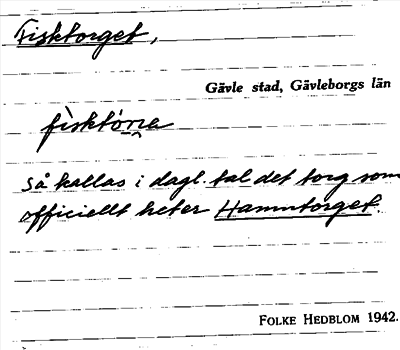 Fisktorget,
Gävle stad, Gävleborgs län
fìsktórje
så kallas i dagl. tal det torg som
officiellt heter Hamntorget.
FOLKE HEDBLOM 1942.